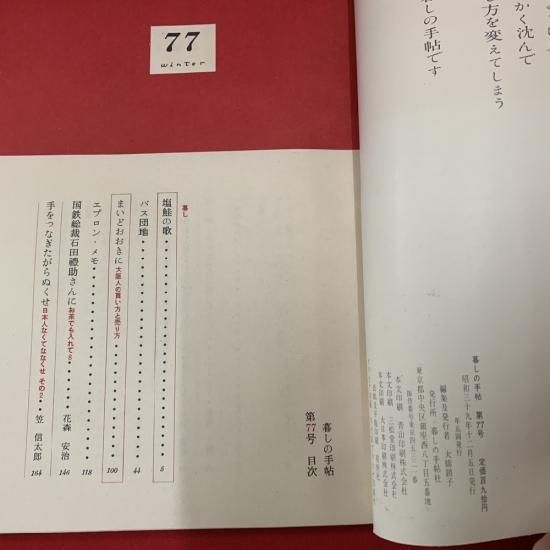 77
winter
暮しの手帖
第77号 目次
暮し
塩鮭の歌 5
バス団地 44
まいどおおきに 大阪人の買い方と売り方 100
エプロン・メモ 118
国鉄総裁石田禮助さんに お茶でも入れて8 花森 安治 146
手をつなぎたがらぬくせ 日本人なくてななくせ その2 笠 信太郎 164
かく沈んで
方を変えてしまう
暮しの手帖です
暮しの手帖 第77号 定価百九拾円
昭和三十九年十二月五日発行
年五回発行
編集及発行者 大橋鎭子
発行所 暮しの手帖社
東京都中央区銀座西八丁目五番地
本文印刷 青山印刷株式会社
本文印刷 二松堂印刷株式会社
本文印刷 大日本印刷株式会社